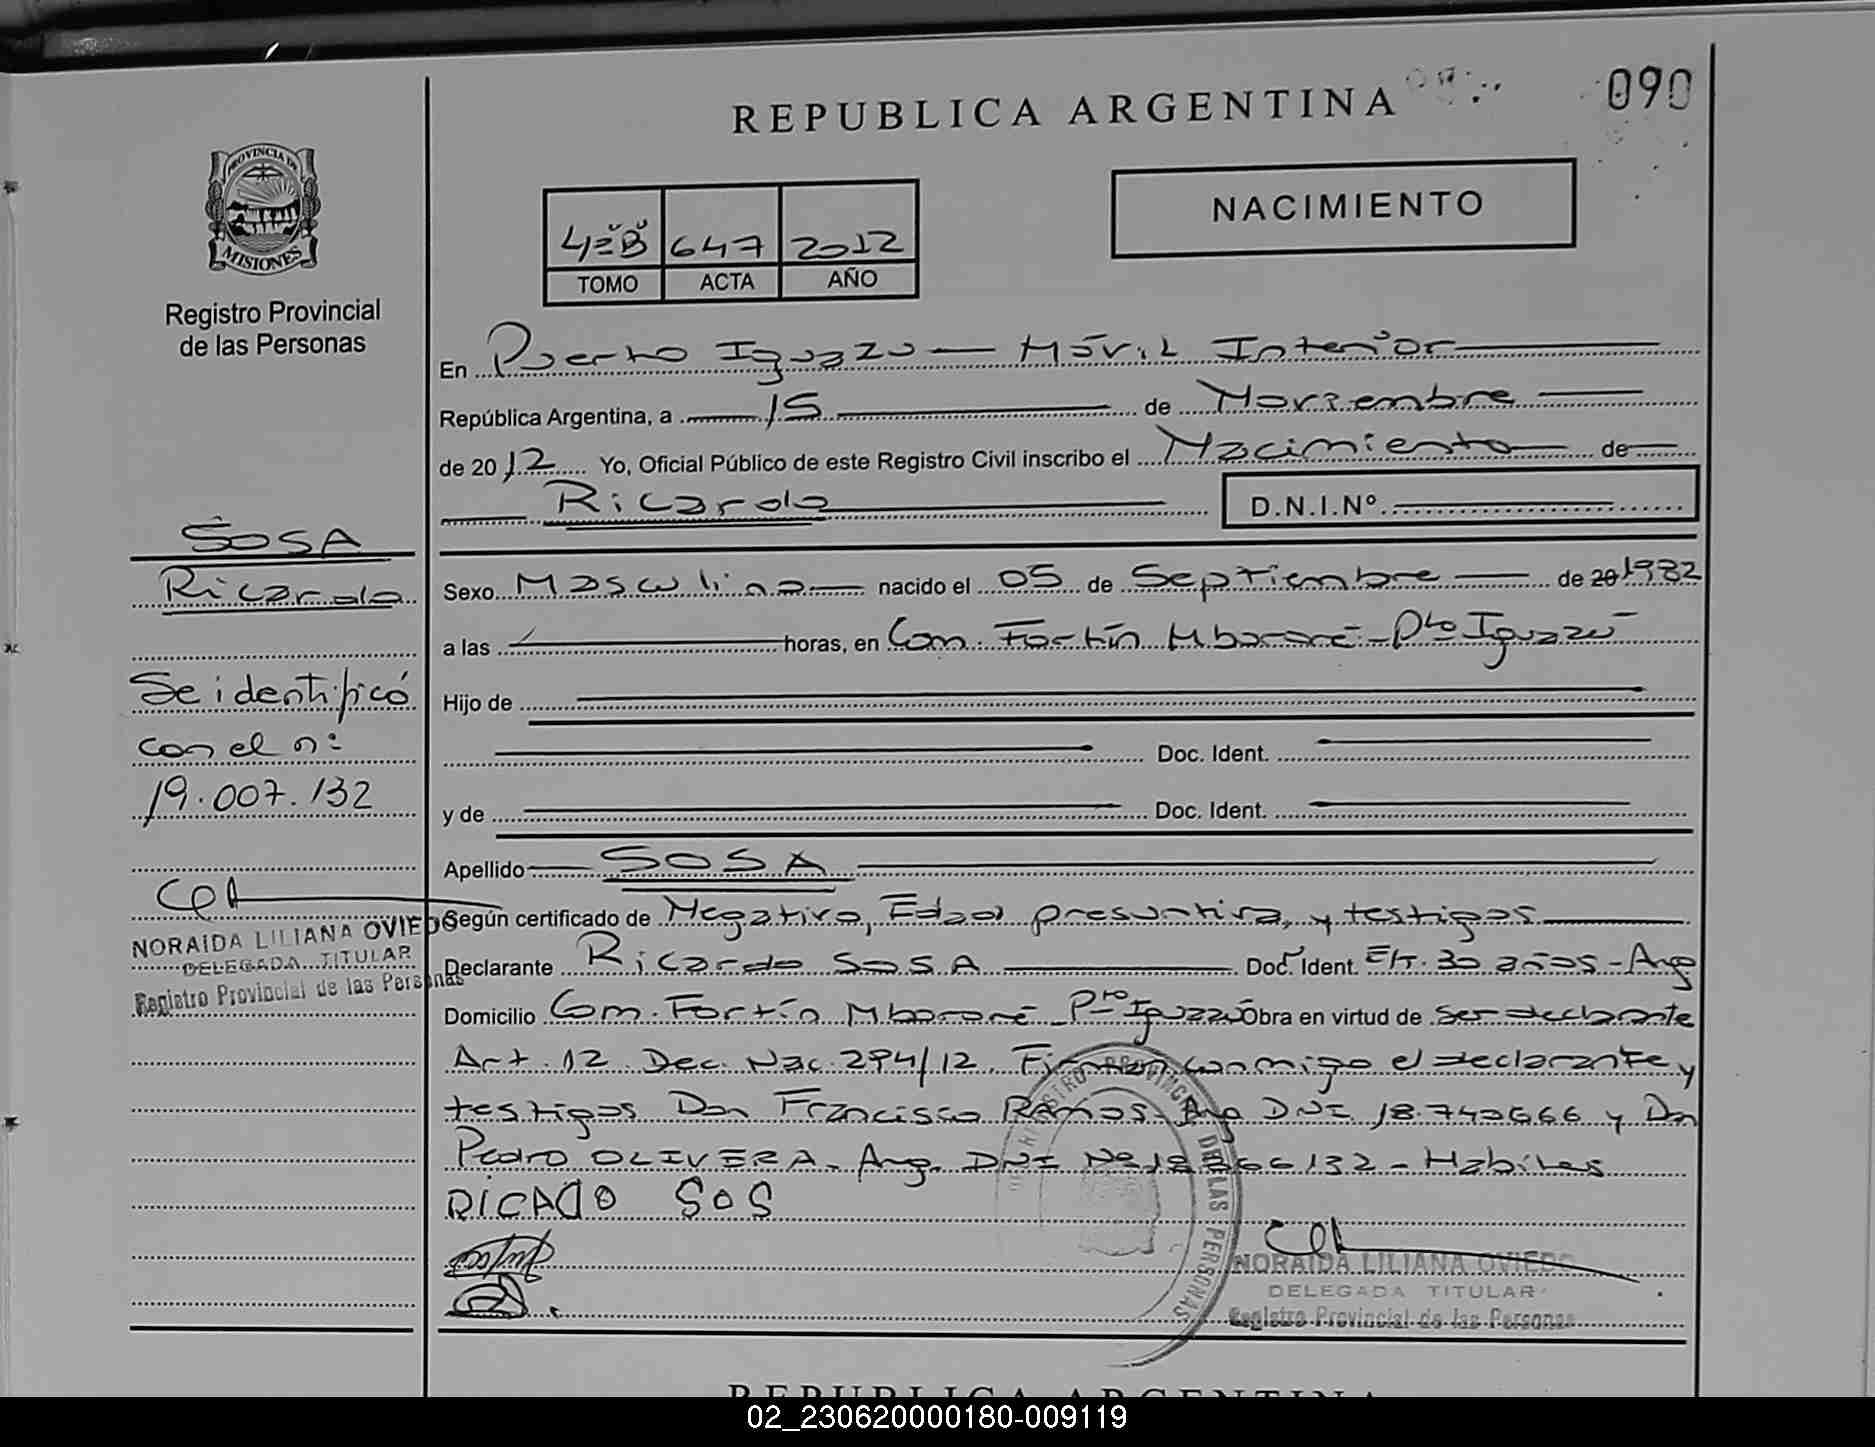 REPUBLICA ARGENTINA
090
PROVINCIA DE
MISIONES
Registro Provincial
de las Personas
4º B 647 2012
TOMO ACTA AÑO
NACIMIENTO
En Puerto Iguazú - Móvil Interior
República Argentina, a 15 de Noviembre
de 2012 Yo, Oficial Público de este Registro Civil inscribo el Nacimiento de
Ricardo D.N.I.Nº
SOSA
Ricardo
Se identificó
con el nº
19.007.132
NORAIDA LILIANA OVIEDO
DELEGADA TITULAR
Registro Provincial de las Personas
Sexo Masculino nacido el 05 de Septiembre de 20 1982
a las horas, en Com. Fortín Mbororé - Pto Iguazú
Hijo de
Doc. Ident.
y de Doc. Ident.
Apellido SOSA
Según certificado de Negativo, Edad presuntiva, y testigos
Declarante Ricardo SOSA Doc. Ident. E/T. 30 años - Arg
Domicilio Com. Fortín Mbororé Pto Iguazú Obra en virtud de ser declarante
Art. 12 Dec. Nac. 294/12. Firman conmigo el declarante y
testigos Don Francisco RAMOS - Arg DNI 18.740666 y Don
Pedro OLIVERA - Arg. DNI Nº 132 - Hábiles
RICADO SOS
REGISTRO PROVINCIAL DE LAS PERSONAS
NORAIDA LILIANA OVIEDO
DELEGADA TITULAR
Registro Provincial de las Personas
REPUBLICA ARGENTINA
02_230620000180-009119